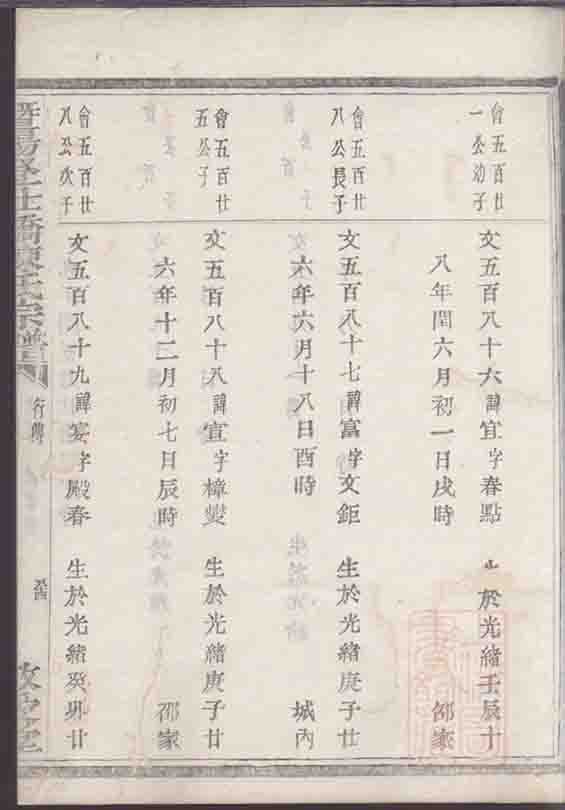 會五百廿
一公幼子
文五百八十六諱宜字春點 生於光緒壬辰十
八年閏六月初一日戌時 邵家
會五百廿
八公長子
文五百八十七諱富字文鉅 生於光緒庚子廿
六年六月十八日酉時 城內
會五百廿
五公子
文五百八十八諱宣字樟燮 生於光緒庚子廿
六年十二月初七日辰時 邵家
會五百廿
八公次子
文五百八十九諱宴字殿春 生於光緒癸卯廿
宗譜
行傳